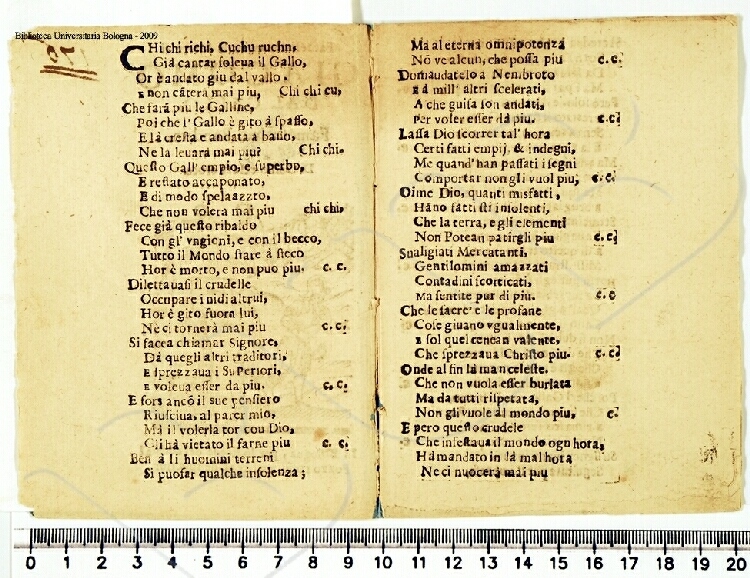 Biblioteca Universitaria Bologna - 2009
CHi chi richi, Cuchu ruchu,
Già cantar soleua il Gallo,
Or è andato giu dal vallo
E non cāterà mai piu, Chi chi cu,
Che farà piu le Galline,
Poi che l' Gallo è gito à spasso,
E la cresta e andata à basso,
Ne la leuarà mai piu? Chi chi.
Questo Gall' empio, e superbo,
E restato accaponato,
E di modo spelaazzto,
Che non volerà mai piu chi chi,
Fece già questo ribaldo
Con gl' vngioni, e con il becco,
Tutto il Mondo stare à stecco
Hor è morto, e non puo piu. c. c.
Dilettauasi il crudelle
Occupare i nidi altrui,
Hor è gito fuora lui,
Ne ci tornerà mai piu c. c.
Si facea chiamar Signore,
Dà quegli altri traditori,
E sprezzaua i suPeriori,
E voleua esser da piu. c. c.
E fors ancô il sue pensiero
Riusciua, al parer mio,
Mà il volerla tor cou Dio,
Gli hà vietato il farne piu c. c.
Ben à li huomini terreni
Si puosar qualche insolenza;
Ma al eterna omnipotenza
Nō ve alcun, che possa piu c. c.
Domaudatelo a Nembroto
E à mill' altri scelerati,
A che guisa son andati,
Per voler esser da piu. c. c.
Lassa Dio scorrer tal' hora
Certi fatti empij, & indegni,
Me quand' han passati i segni
Comportar non gli vuol piu, c. c.
Oime Dio, quanti misfatti,
Hāno fatti sti insolenti,
Che la terra, e gli elementi
Non Potean patirgli piu c. c.
Sualigiati Mercatanti,
Gentilomini amazzati
Contadini scorticati,
Ma sentite pur di piu. c. c
Che le sacre e le profane
Cose giuano vgualmente,
E sol quel cenean valente,
Che sprezzaua Christo piu. c. c.
Onde al fin la man celeste,
Che non vuola esser burlata
Ma da tutti rispetata,
Non gli vuole al mondo piu, c.
E pero questo crudele
Che infestaua il mondo ogn hora,
Hà mandato in là mal hora
Ne ci nuocerà mai piu
0 1 2 3 4 5 6 7 8 9 10 11 12 13 14 15 16 17 18 19 20